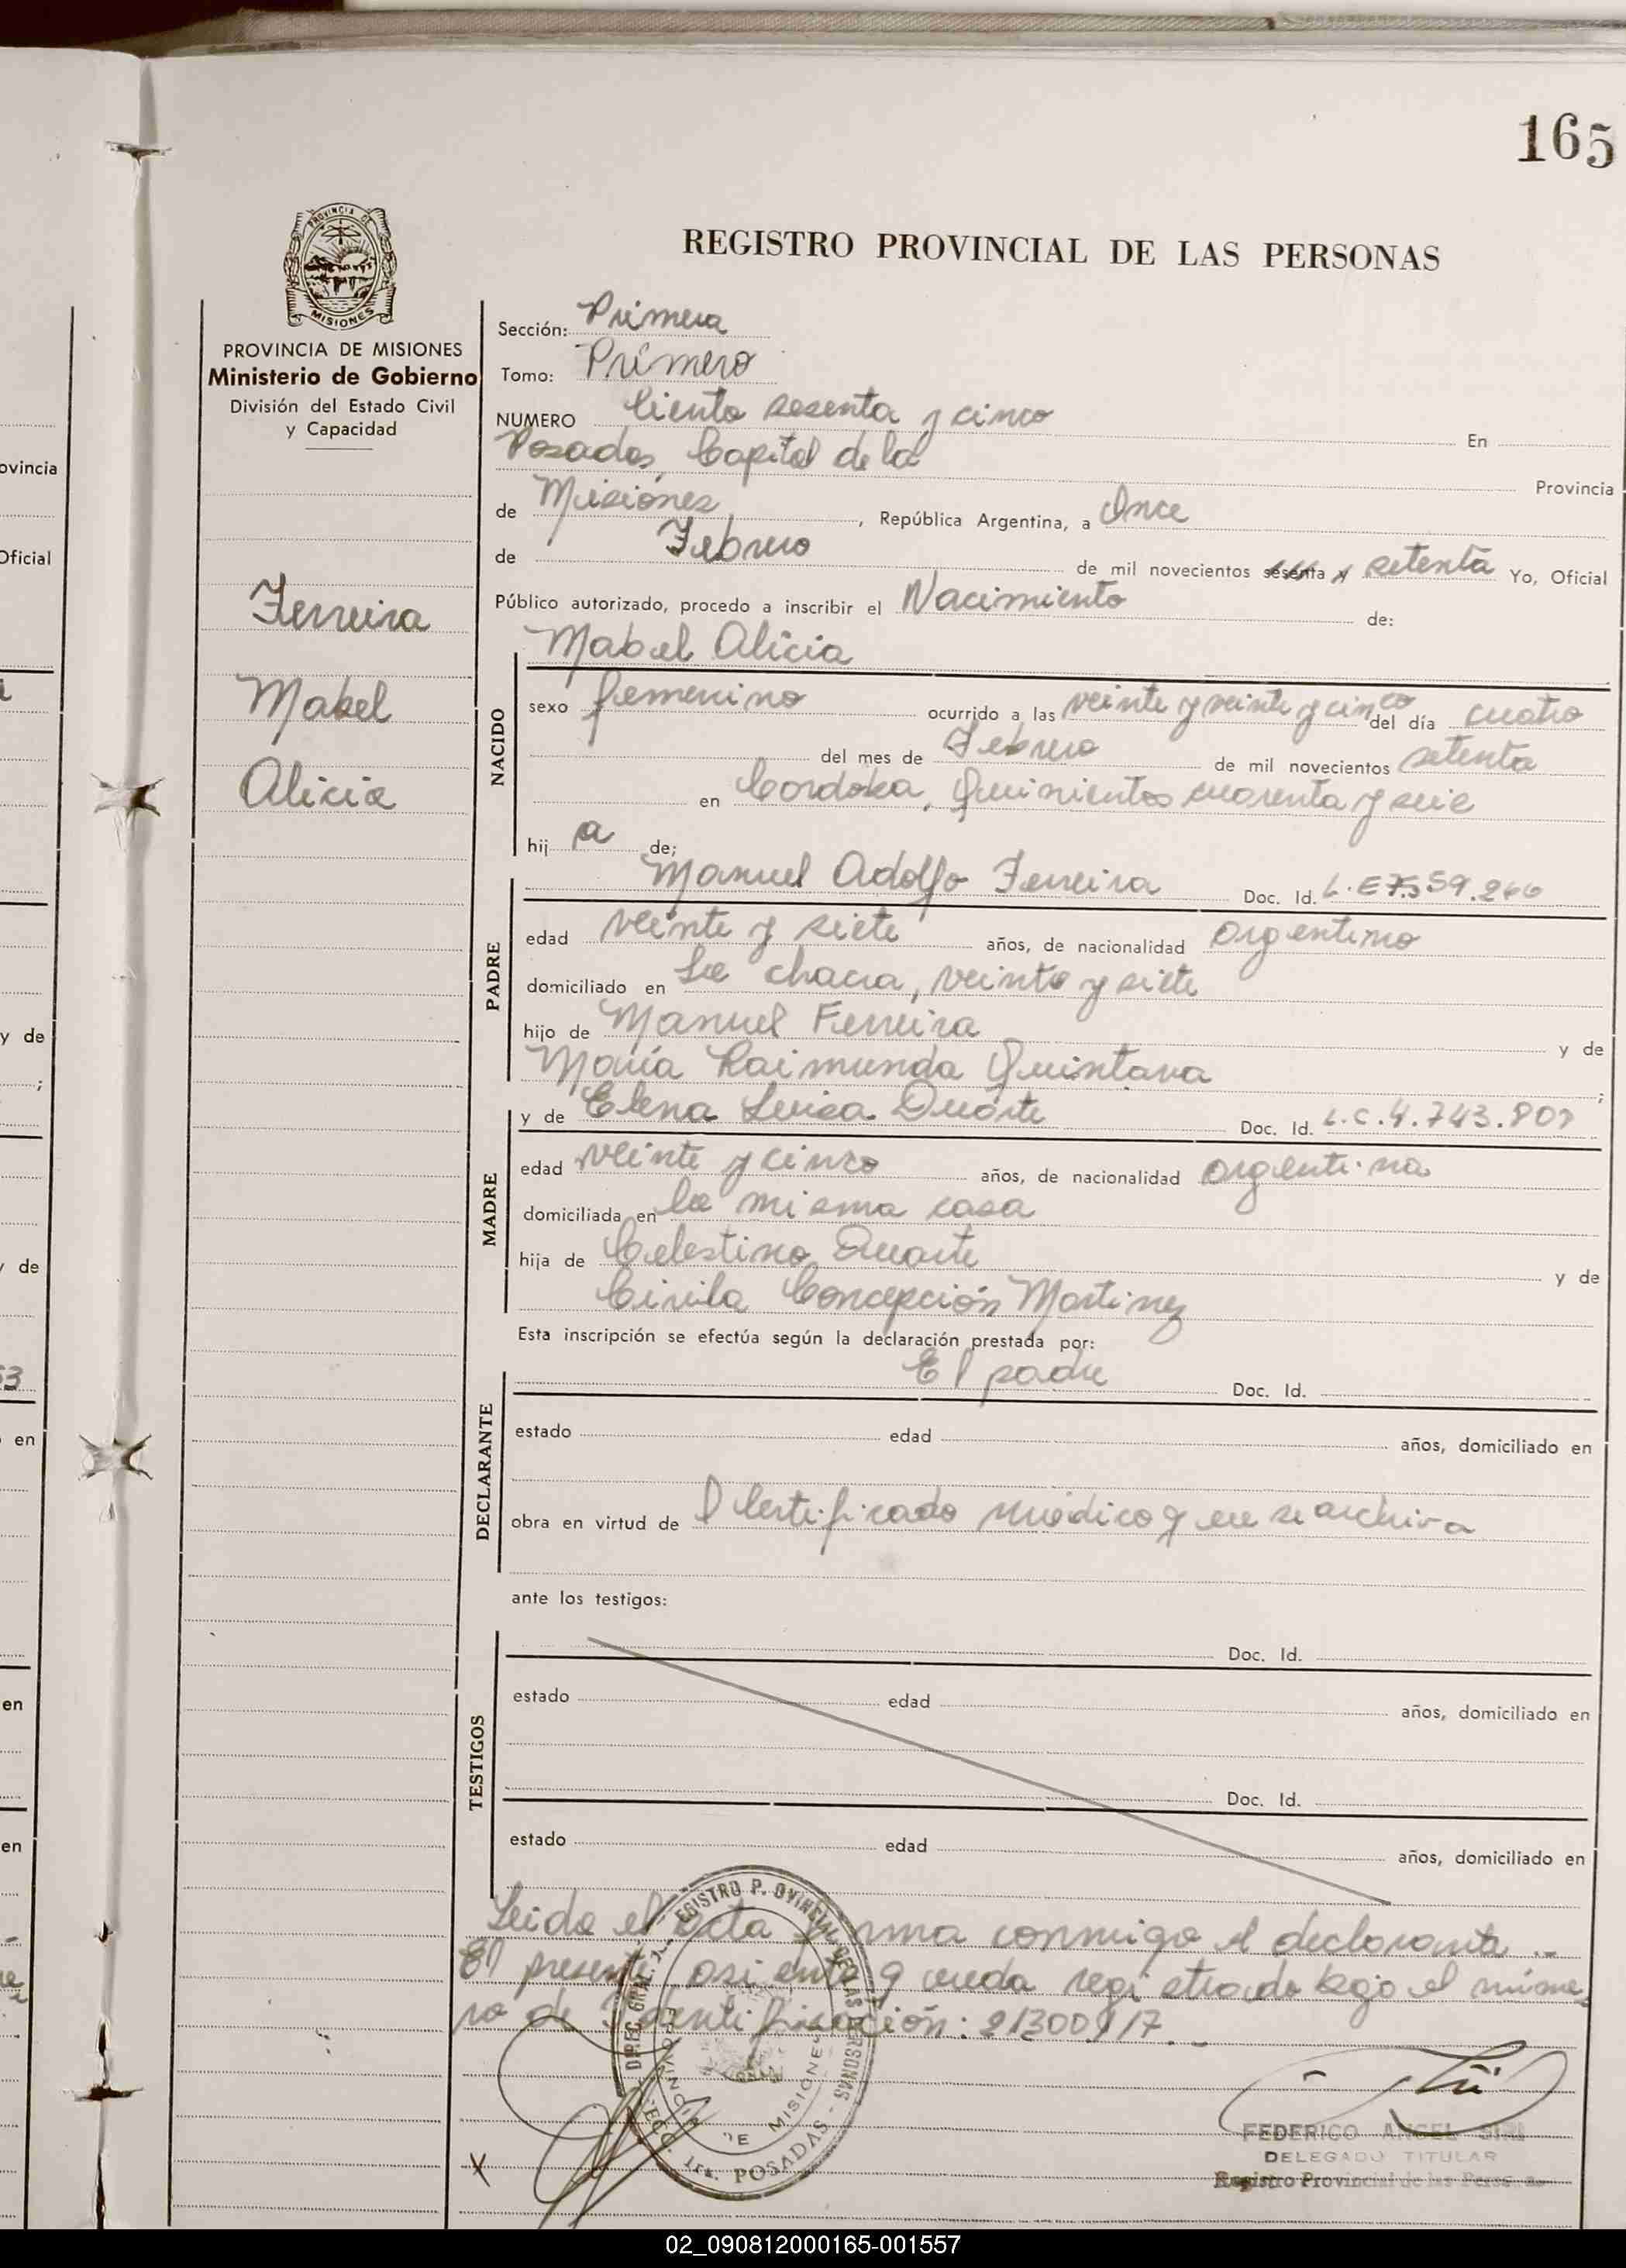 165
REGISTRO PROVINCIAL DE LAS PERSONAS
PROVINCIA DE
MISIONES
PROVINCIA DE MISIONES
Ministerio de Gobierno
División del Estado Civil
y Capacidad
Ferreira
Mabel
Alicia
Sección: Primera
Tomo: Primero
NUMERO Ciento sesenta y cinco En
Posadas, Capital de la Provincia
de Misiones, República Argentina, a Once
de Febrero de mil novecientos sesenta y setenta Yo, Oficial
Público autorizado, procedo a inscribir el Nacimiento de:
Mabel Alicia
NACIDO
sexo femenino ocurrido a las veinte y veinte y cinco del día cuatro
del mes de Febrero de mil novecientos setenta
en Cordoba, Quinientos cuarenta y seis
hij a de;
Manuel Adolfo Ferreira Doc. Id. L.E 7.559.266
PADRE
edad veinte y siete años, de nacionalidad argentino
domiciliado en La chacra, veinte y siete
hijo de Manuel Ferreira y de
María Raimunda Quintana ;
y de Elena Luisa Duarte Doc. Id. L.C.4.743.807
MADRE
edad veinte y cinco años, de nacionalidad argentina
domiciliada en la misma casa
hija de Celestino Duarte y de
Cirila Concepción Martinez
Esta inscripción se efectúa según la declaración prestada por:
El padre Doc. Id.
DECLARANTE
estado edad años, domiciliado en
obra en virtud de l Certificado médico que se archiva
ante los testigos:
Doc. Id.
TESTIGOS
estado edad años, domiciliado en
Doc. Id.
estado edad años, domiciliado en
Leida el acta firma conmigo el declarante ..
El presente asiento queda registrado bajo el núme-
ro de Identificación:
POSADAS
DE MISIONES
FEDERICO ANGEL
DELEGADO TITULAR
Registro Provincial de las Personas
02_090812000165-001557
ovincia
Oficial
y de
y de
53
en
en
en